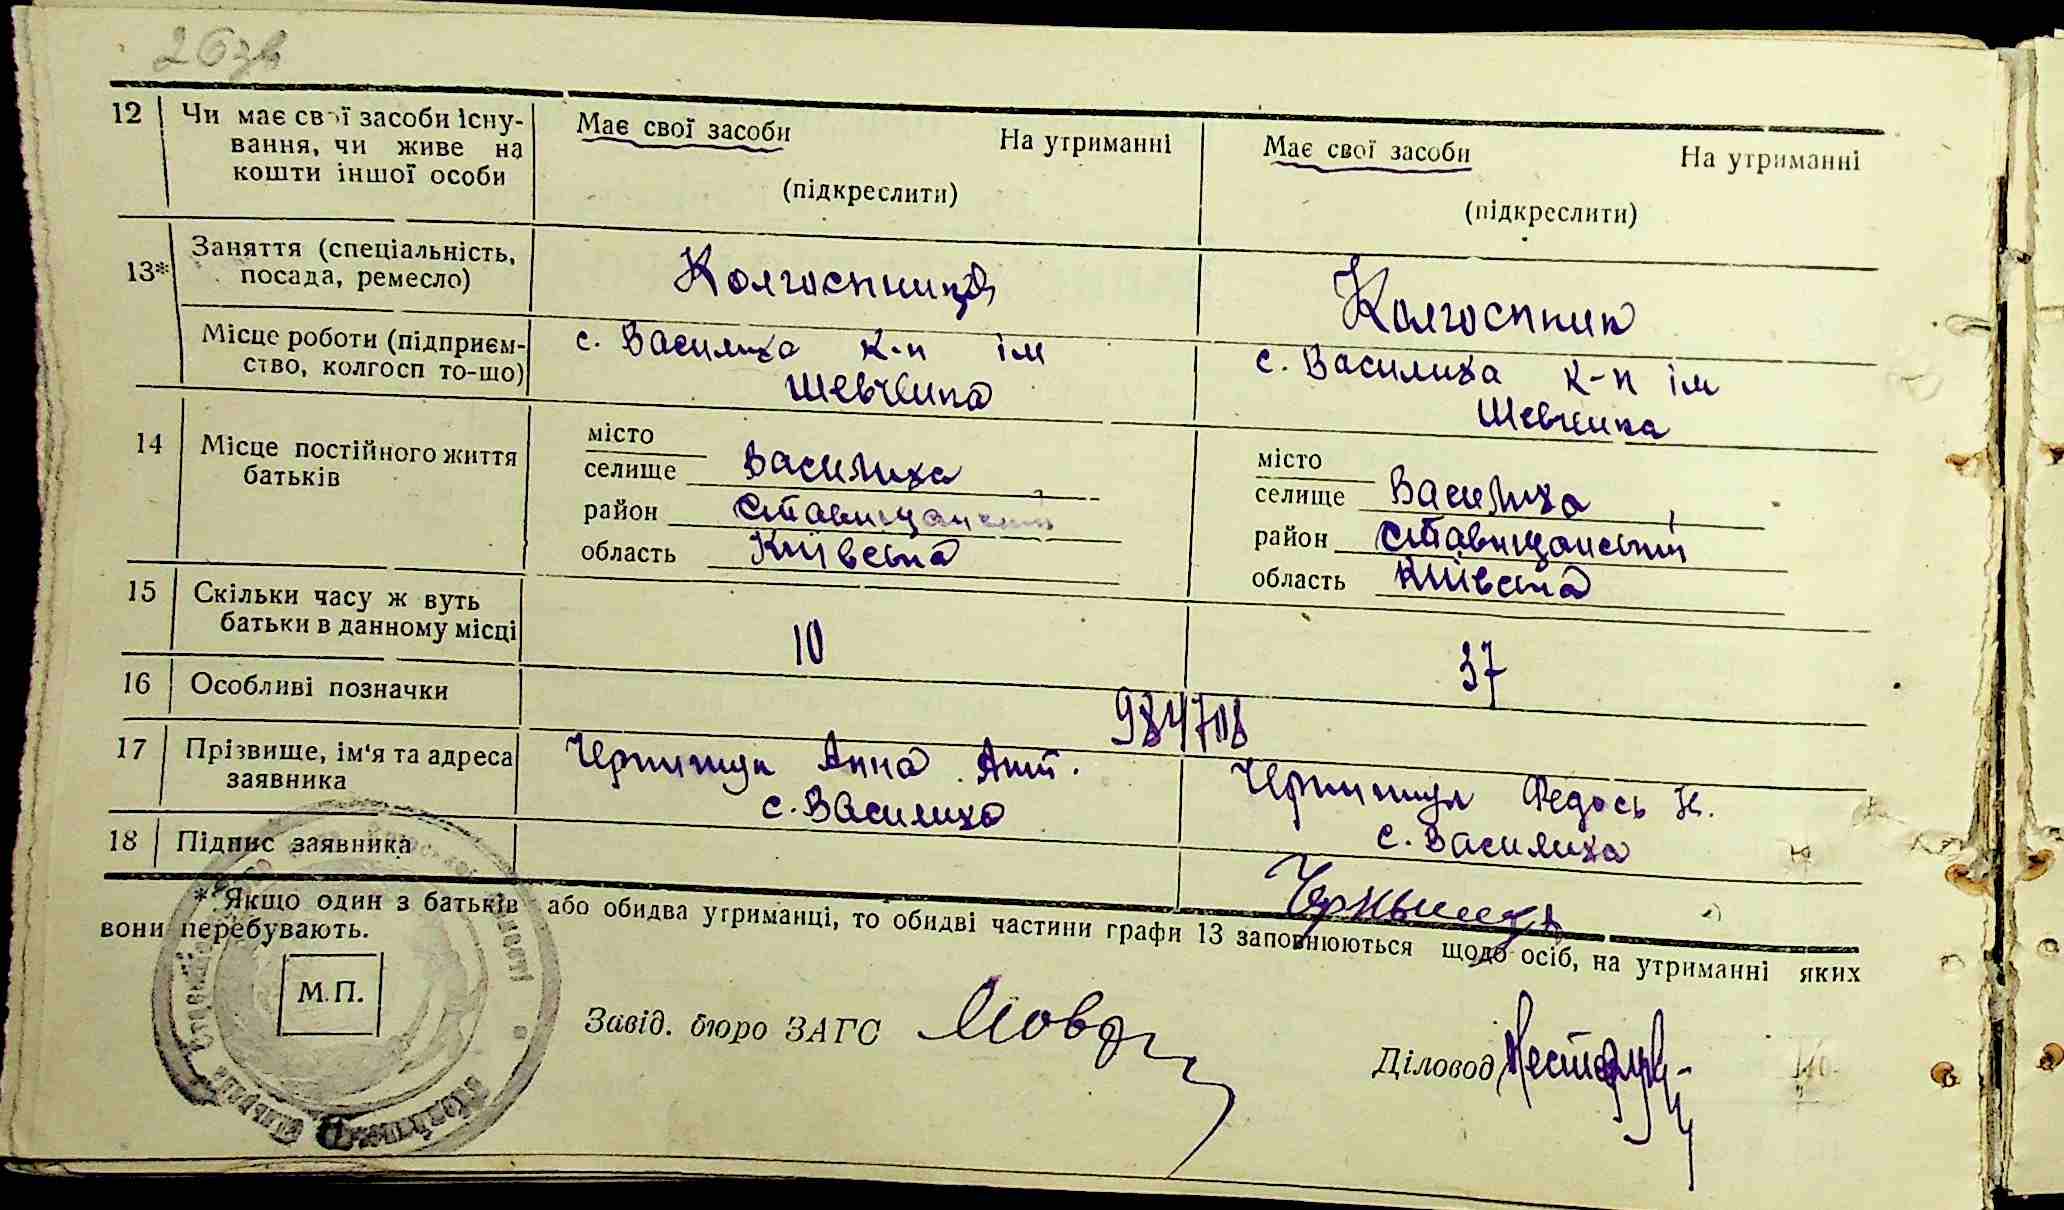 26зв
12 Чи має свої засоби існу-
вання, чи живе на
кошти іншої особи
Має свої засоби На утриманні
(підкреслити)
Має свої засоби На утриманні
(підкреслити)
13* Заняття (спеціальність,
посада, ремесло)
Колгоспниця
Колгоспник
Місце роботи (підприєм-
ство, колгосп то-що)
с. Василиха к-п ім
Шевченка
с. Василиха к-п ім
Шевченка
14 Місце постійного життя
батьків
місто
селище Василиха
район Ставищанський
область Київська
місто
селище Василиха
район Ставищанський
область Київська
15 Скільки часу ж вуть
батьки в данному місці
10
37
16 Особливі позначки
984708
17 Прізвище, ім'я та адреса
заявника
Чернишук Анна Ант.
с. Василиха
Чернишук Федось
с. Василиха
18 Підпис заявника
* Якщо один з батьків або обидва утриманці, то обидві частини графи 13 заповнюються щодо осіб, на утриманні яких
вони перебувають.
М.П.
Завід. бюро ЗАГС
Діловод